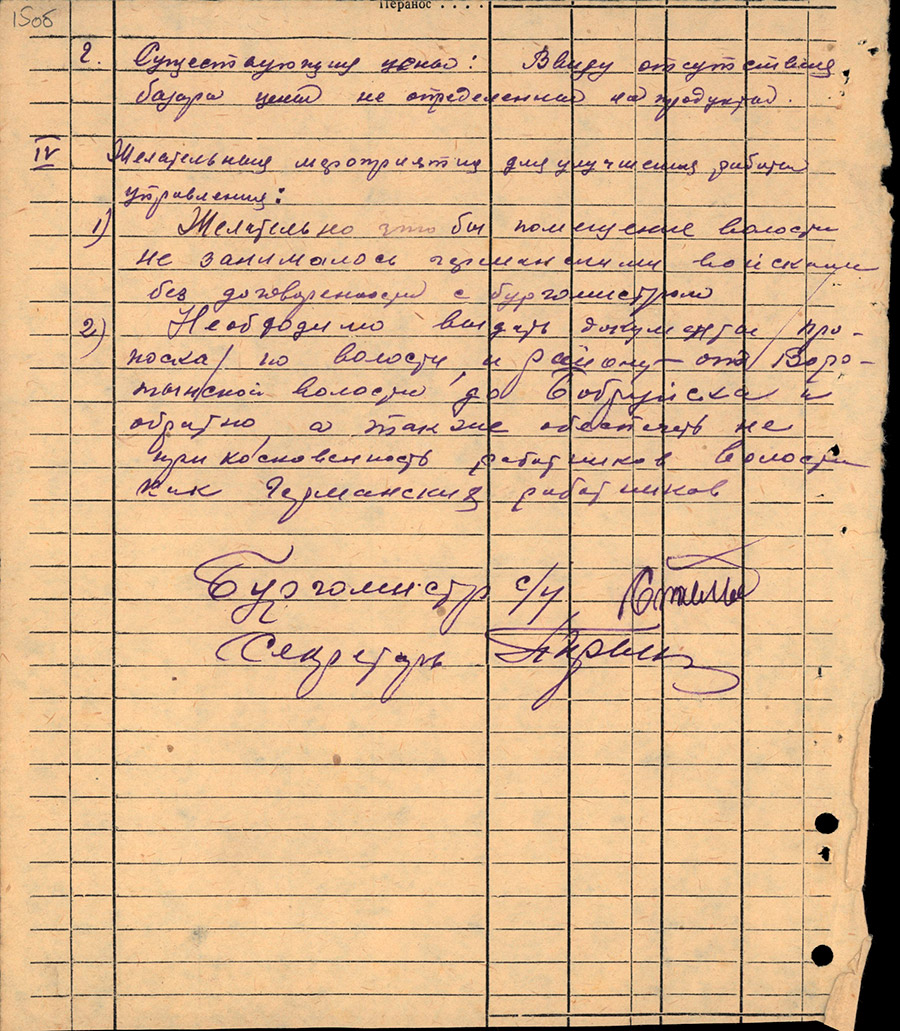 15об
Перанос . . . .
2. Существующия цены: Ввиду отсутствия
базара цены не определенны на продукты.
IV Желательныя мероприятия для улучшения работы
управления:
1) Желательно что бы помещение волости
не занималось германскими войсками
без договоренности с бургомистром
2) Необходимо выдать документы /про-
пуска/ по волости, и району от Воро-
тынской волости до Бобруйска и
обратно, а также обеспечть не
прикосновенность работников волости
как Германских работников
Бургомистр с/у
Секретарь